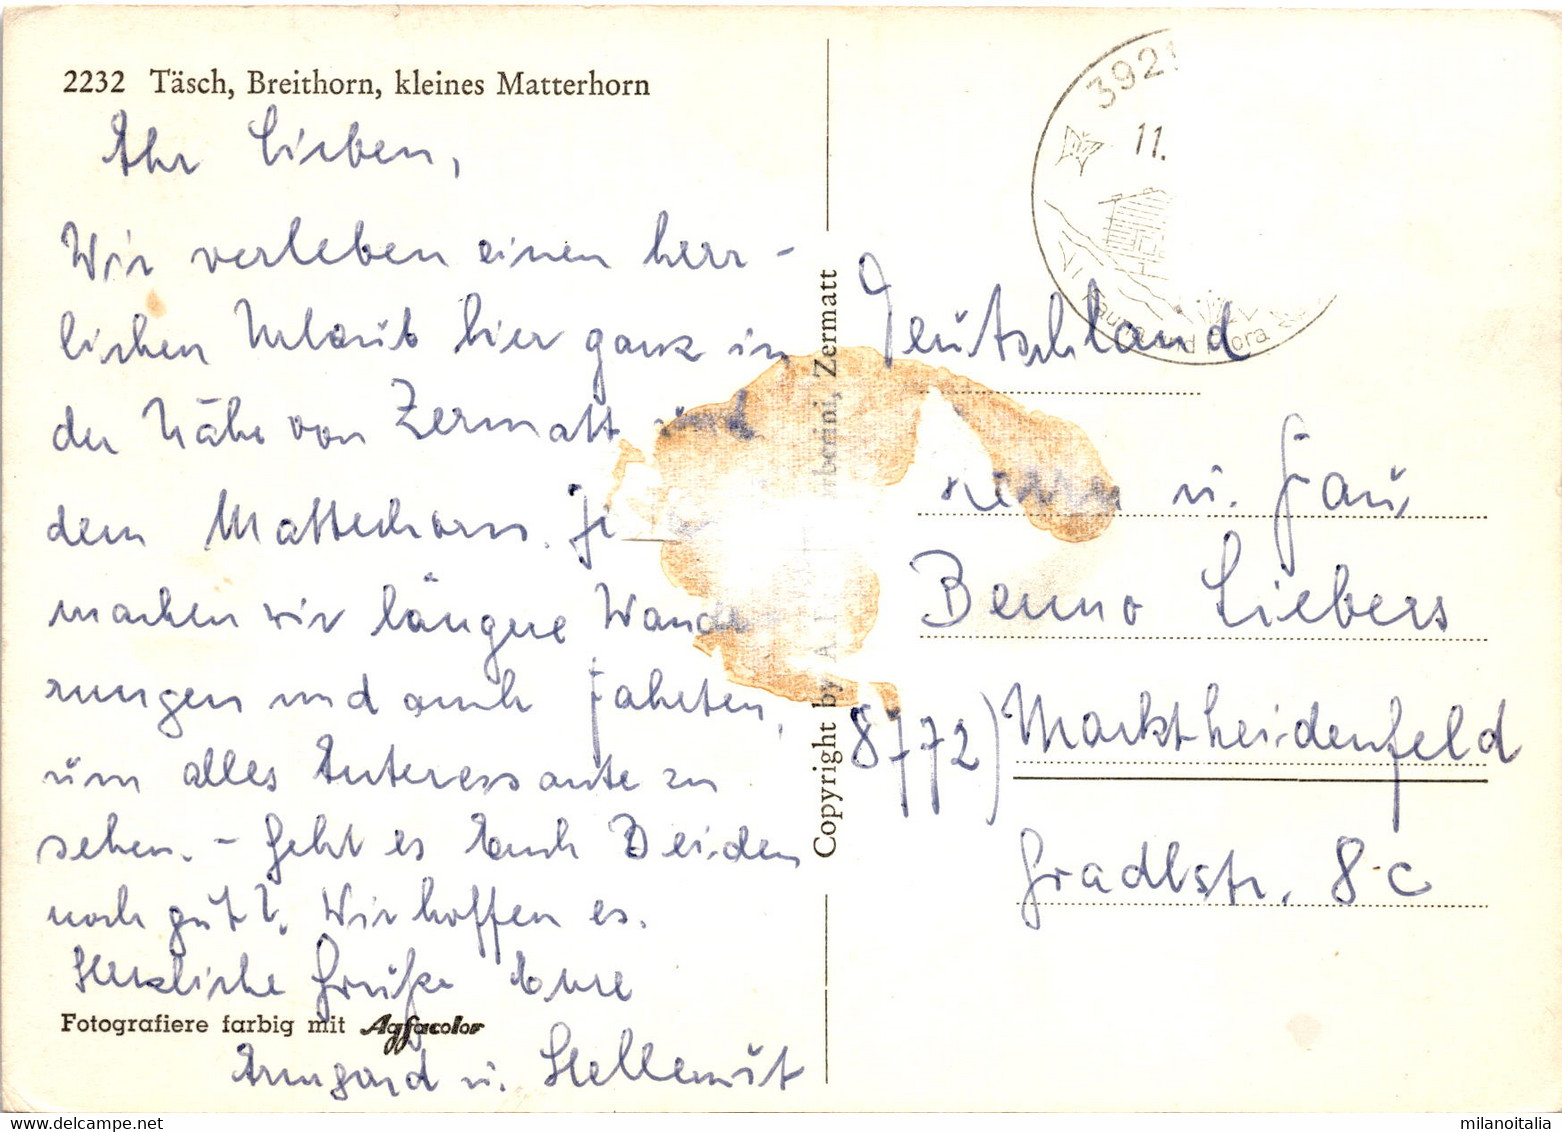 2232 Täsch, Breithorn, kleines Matterhorn
Ihr Lieben,
Wir verleben einen herr-
lichen Urlaub hier ganz in
der Nähe von Zermatt und
dem Matterhorn.
machen wir längere Wande
rungen und auch Fahrten,
um alles Interessante zu
sehen. - Geht es Euch Beiden
noch gut? Wir hoffen es.
Herzliche Grüße Eure
Fotografiere farbig mit Agfacolor
Irmgard u. Hellmut
Copyright by A. Perren-Barberini, Zermatt
3921
11.
Fauna und Flora
Deutschland
Herrn u. Frau
Benno Liebers
8772) Marktheidenfeld
Gradlstr. 8c
milanoitalia